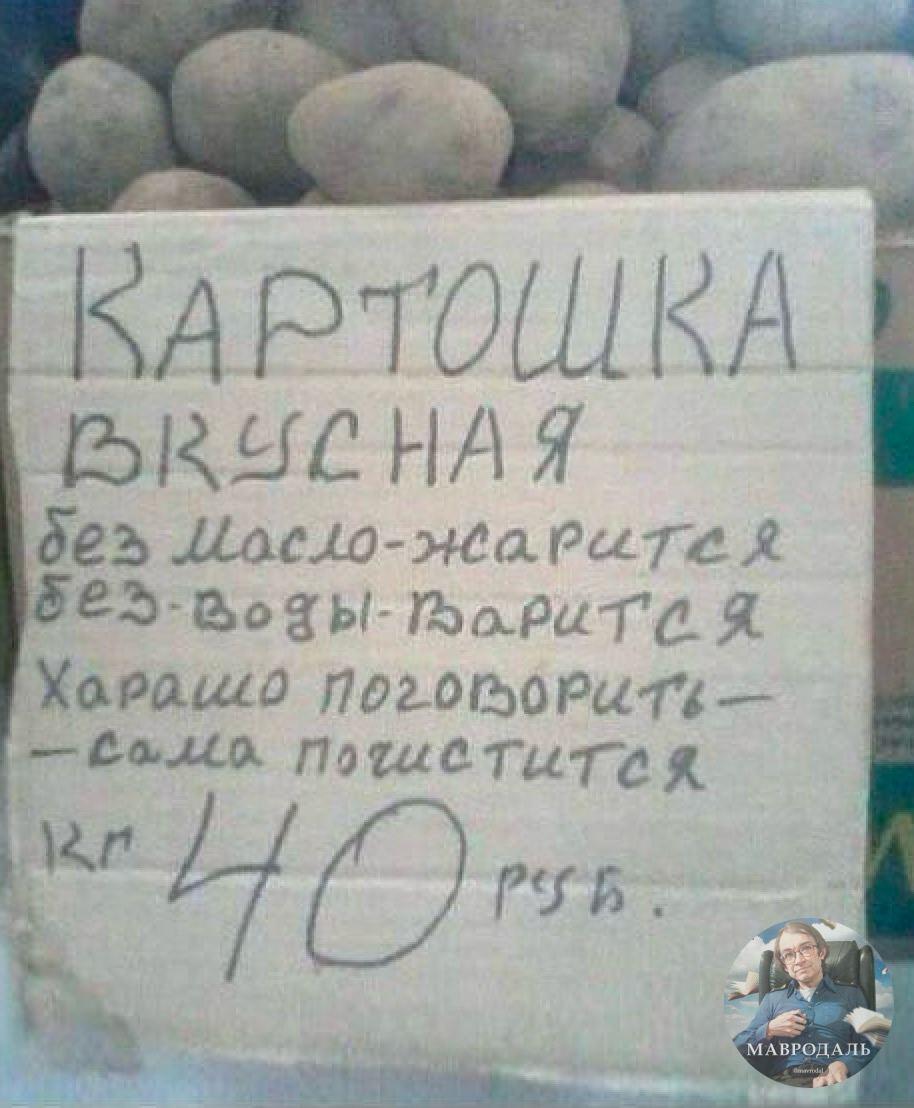 КАРТОШКА
ВКУСНАЯ
без масло-жарится
без-воды-варится
Харашо поговорить—
—сама почистится
кг 40 руб.
МАВРОДАЛЬ
@mavrodal